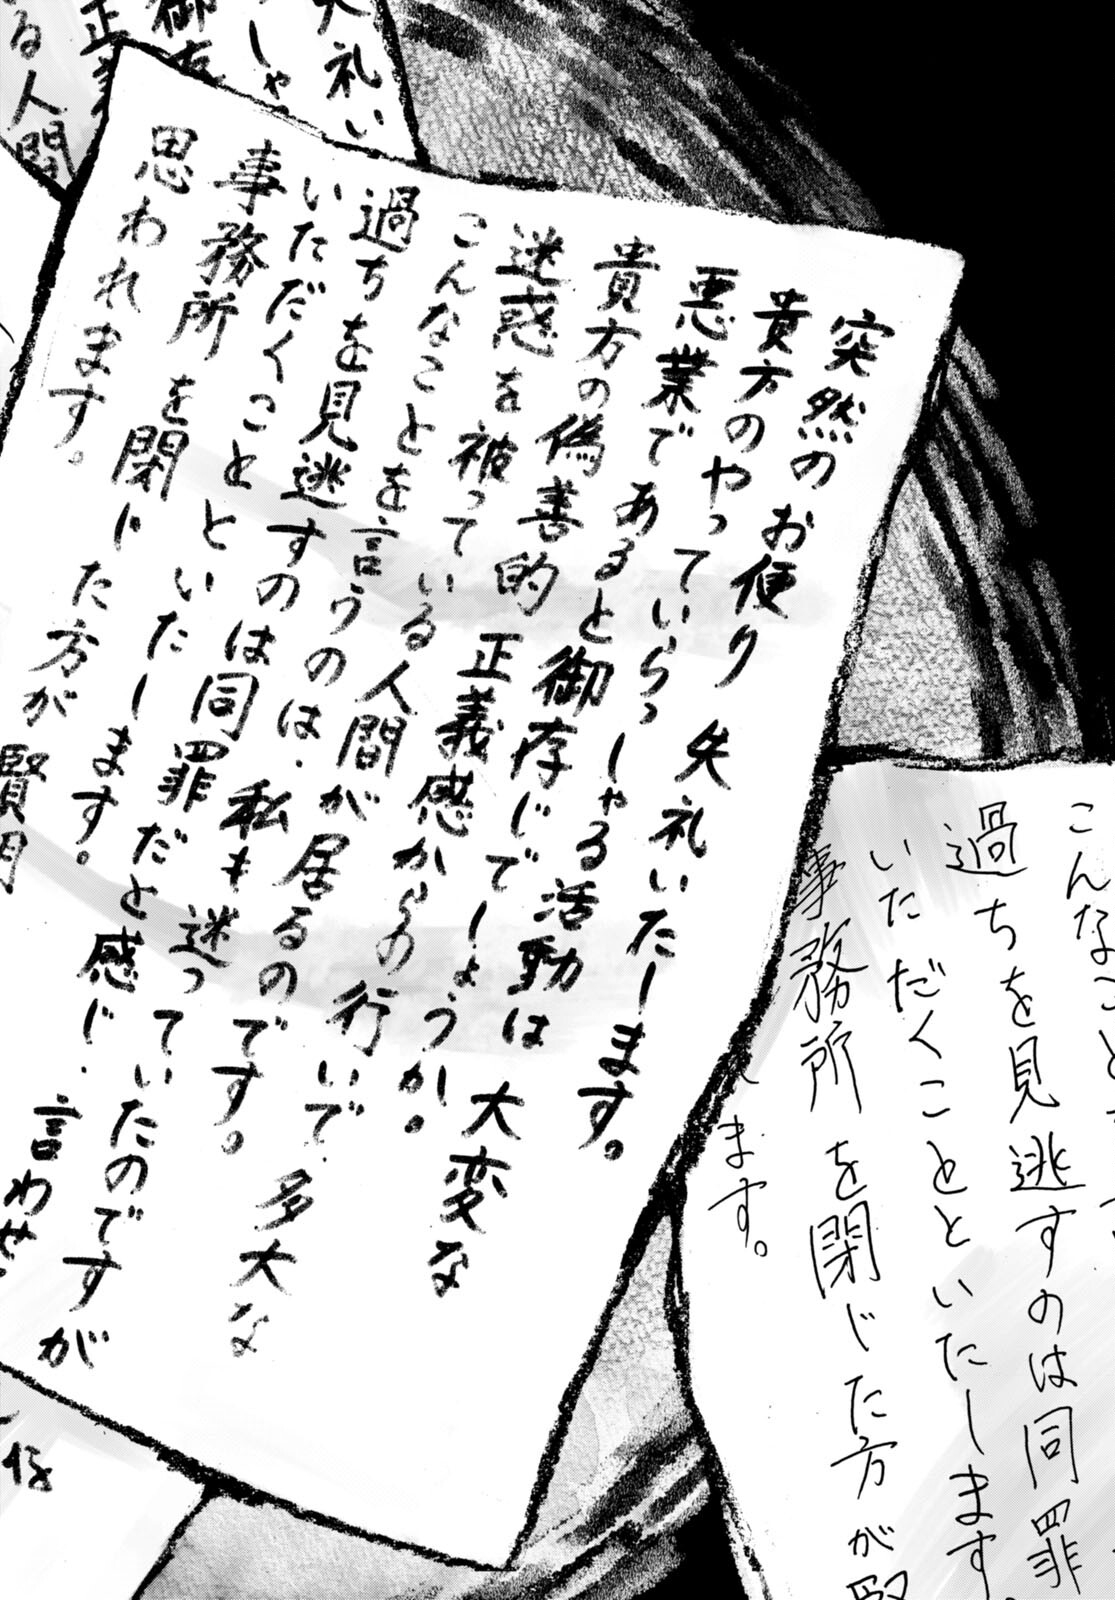 突然のお便り 失礼いたします。
貴方のやっていらっしゃる活動は 大変な
悪業であると御存じでしょうか。
貴方の偽善的 正義感からの行いで、多大な
迷惑を被っている人間が居るのです。
こんなことを言うのは、私も迷っていたのですが
過ちを見逃すのは同罪だと感じ、言わせ
いただくことといたします。
事務所を閉じた方が賢明
思われます。
こんなこと
過ちを見逃すのは同罪
いただくことといたします。
事務所を閉じた方が
ます。
礼い
しゃ
御存
正
る人間